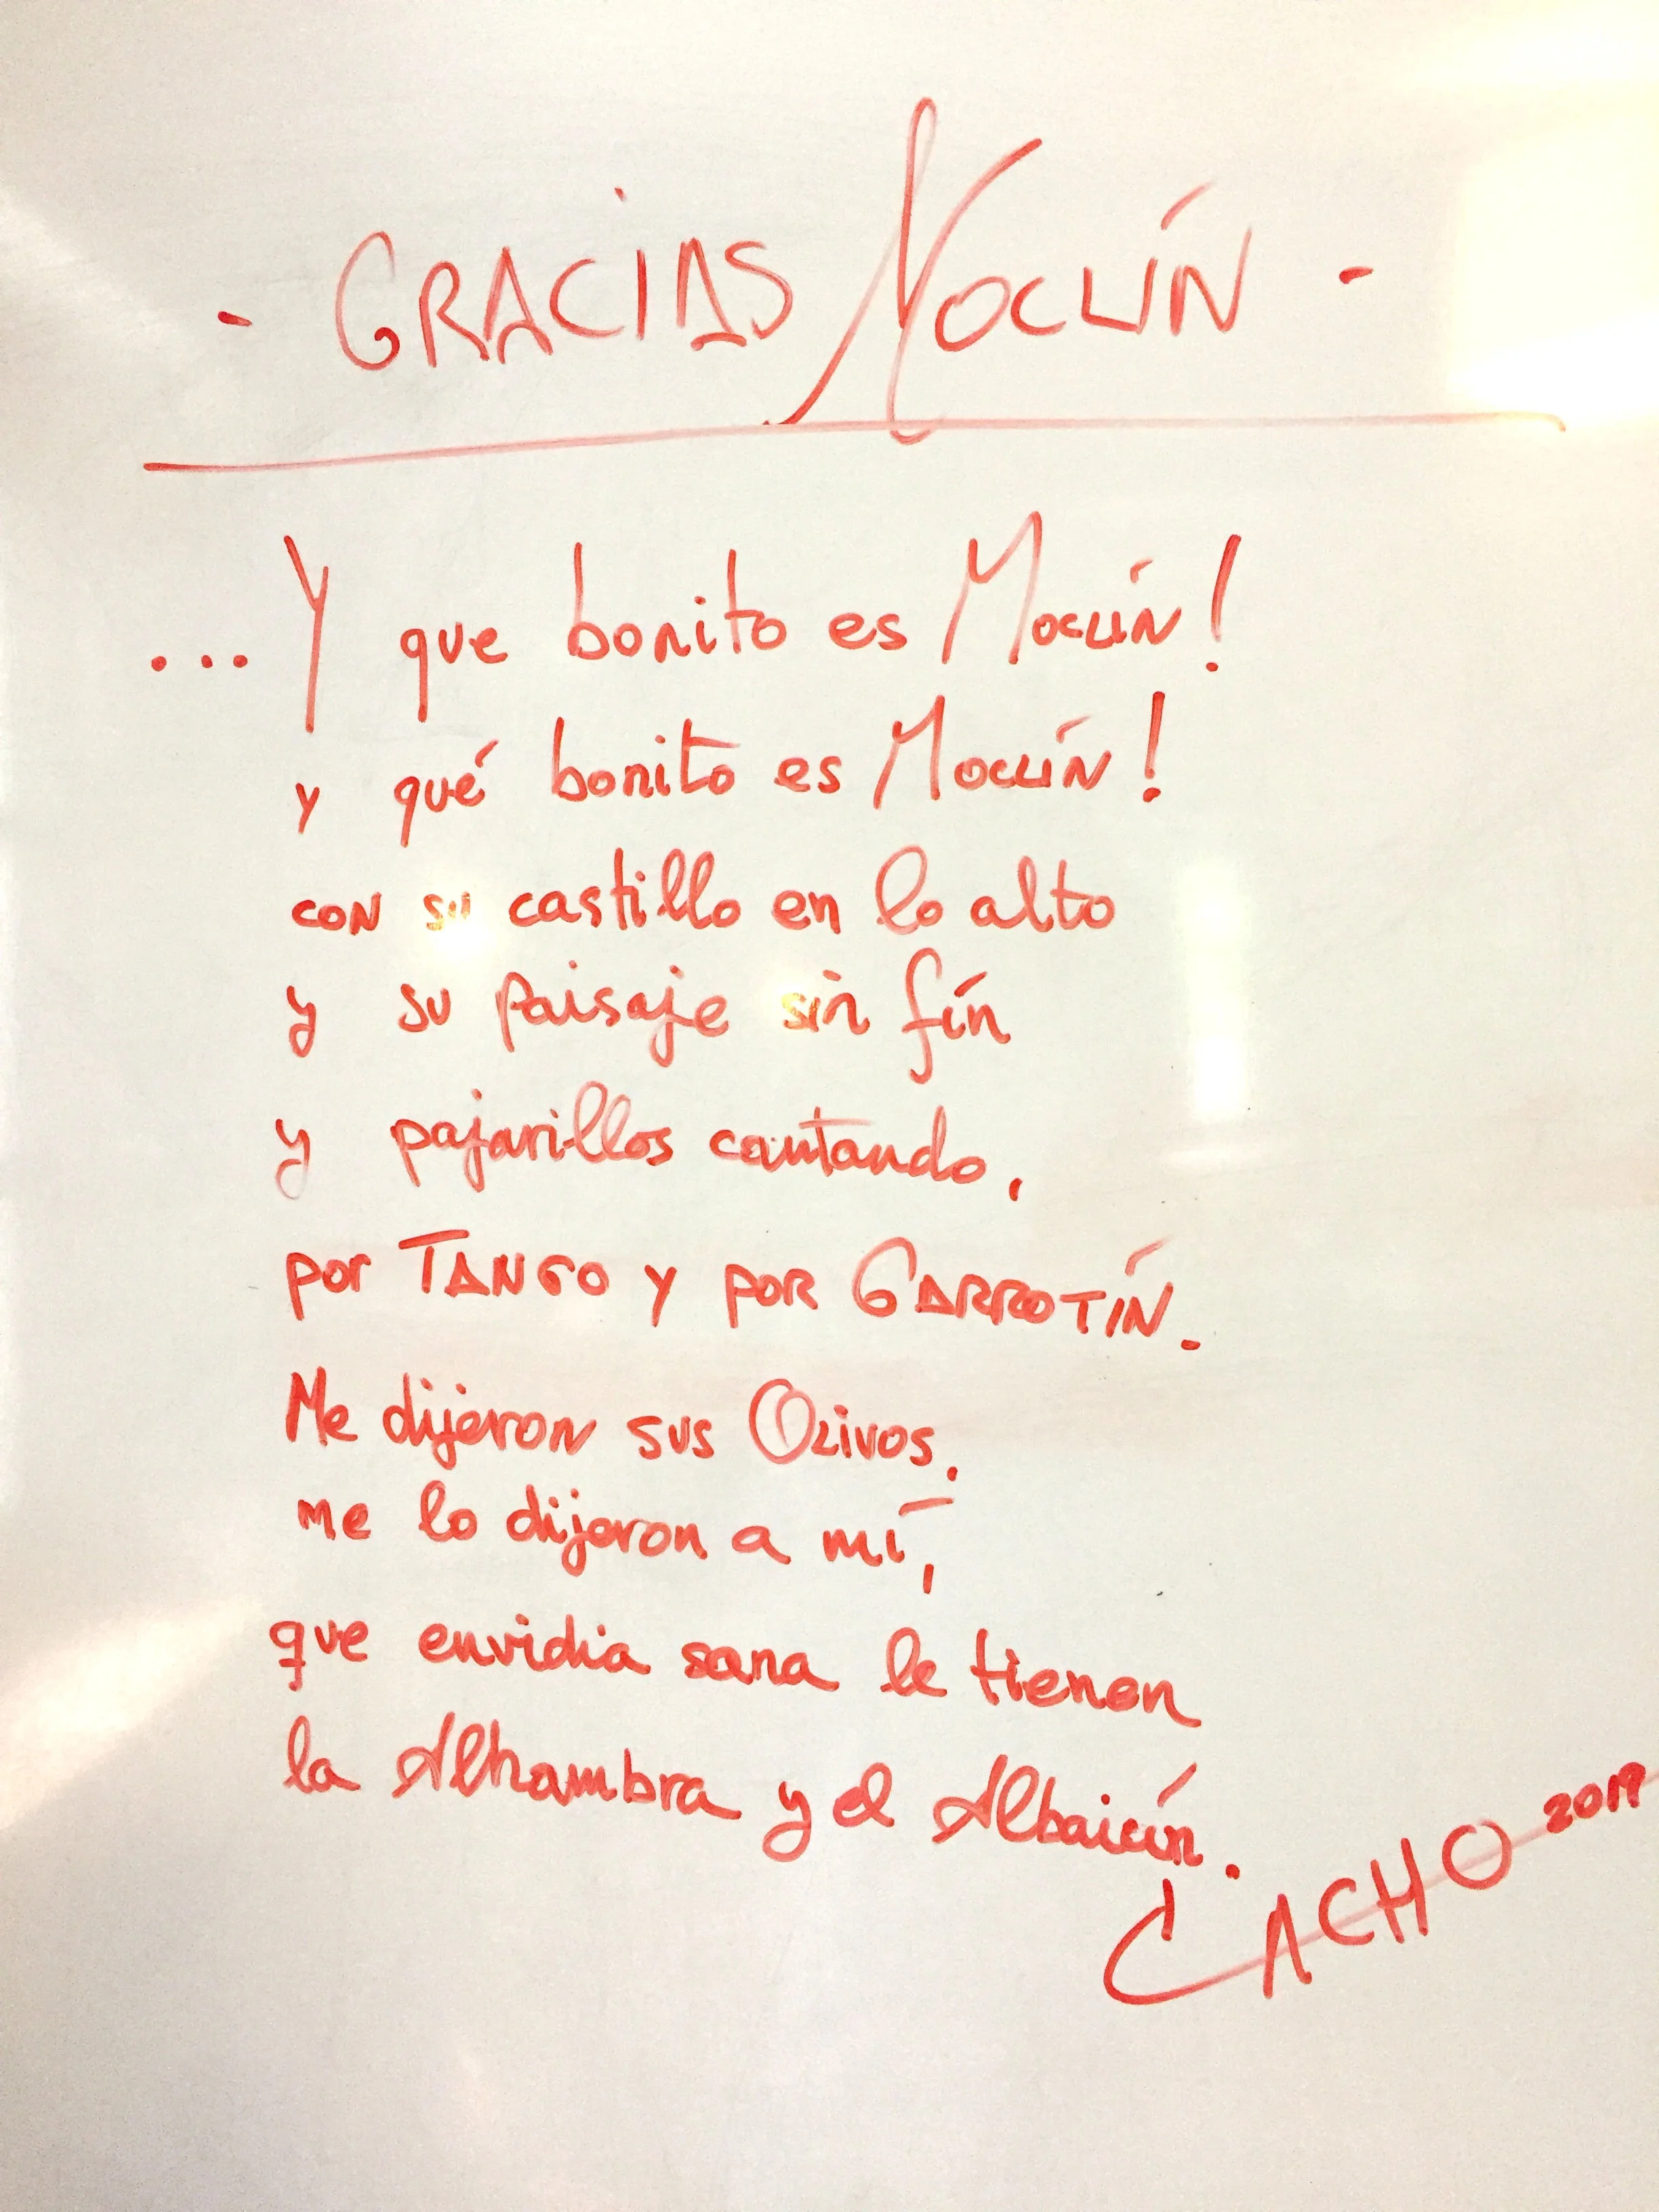 - GRACIAS MOCLÍN -
... Y que bonito es MOCLÍN!
y qué bonito es MOCLÍN!
CON su castillo en lo alto
y su paisaje sin fín
y pajarillos cantando,
por TANGO Y POR GARROTÍN.
Me dijeron sus OLIVOS,
me lo dijeron a mí,
que envidia sana le tienen
la Alhambra y el Albaicín.
CACHO